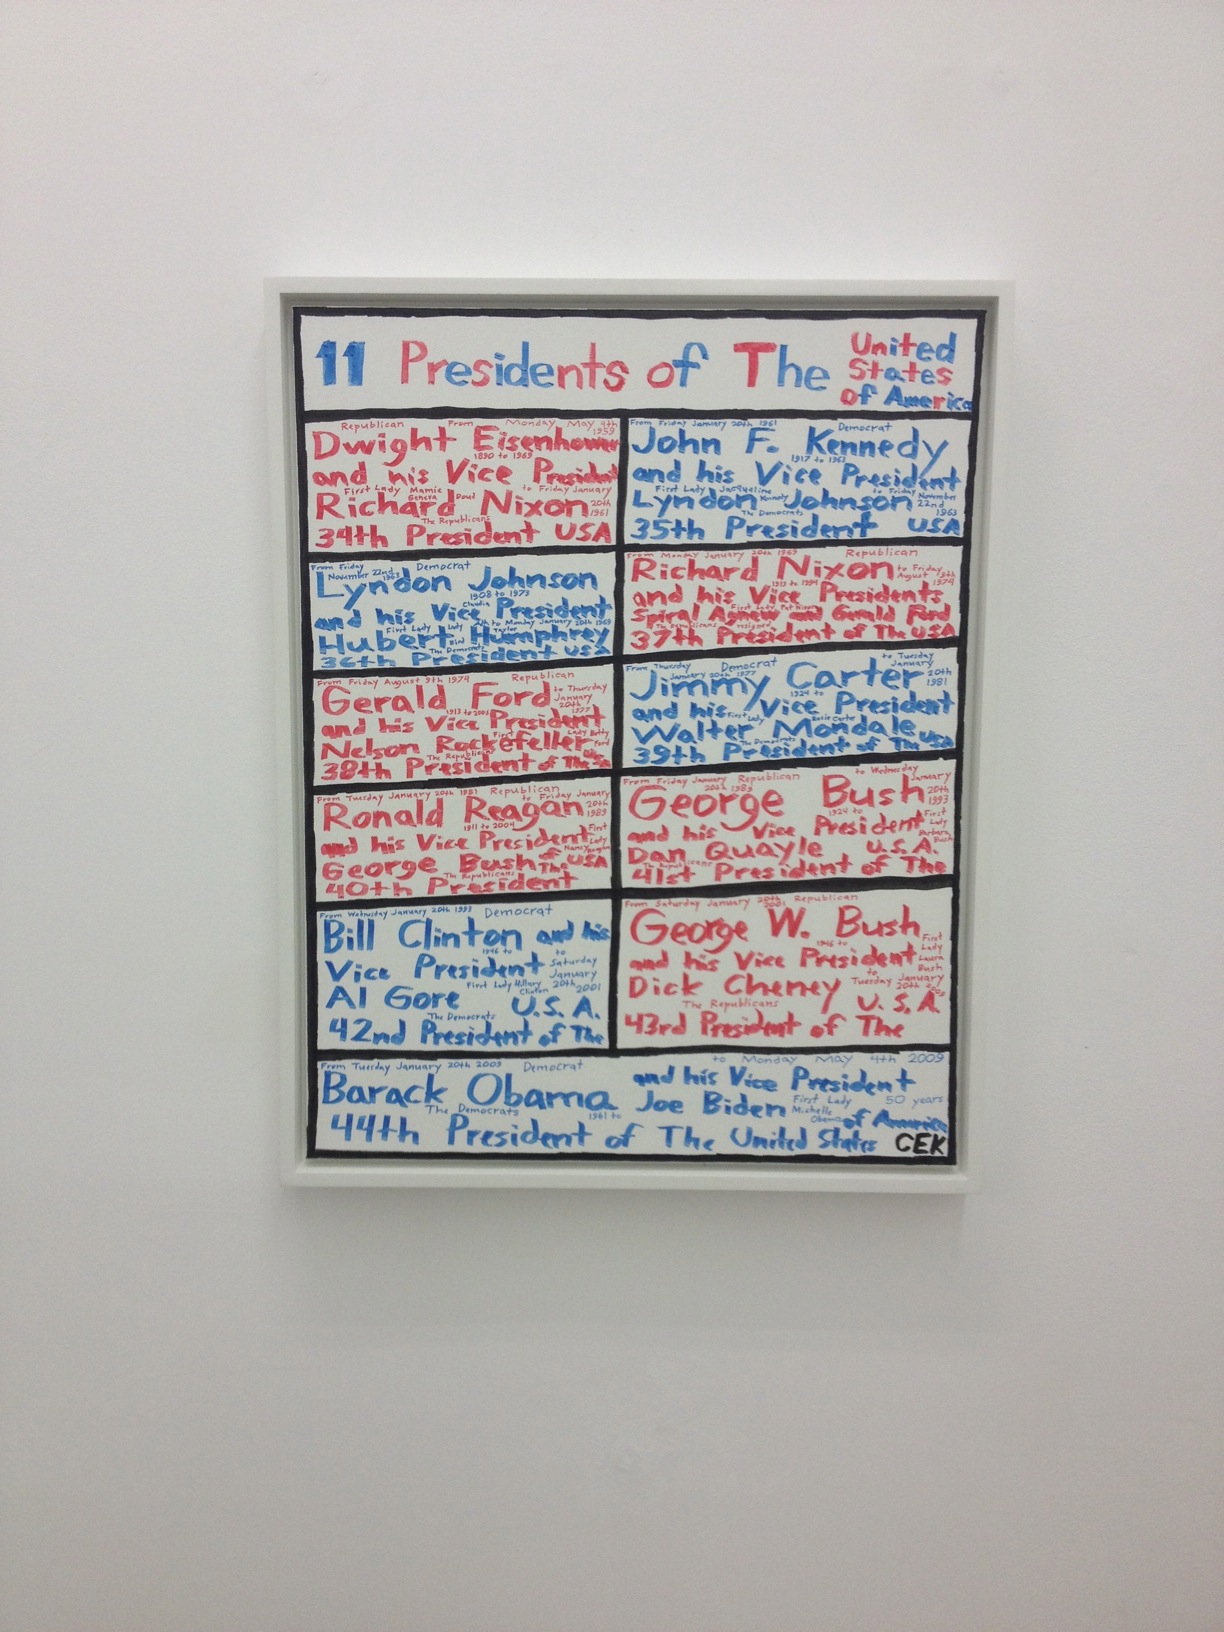 11 Presidents of The United States of America
Republican From Monday May 4th 1959
Dwight Eisenhower
1890 to 1969
and his Vice President
First Lady Mamie Geneva Doud to Friday January 20th 1961
Richard Nixon
The Republicans
34th President USA
From Friday January 20th 1961 Democrat
John F. Kennedy
1917 to 1963
and his Vice President
First Lady Jacqueline Kennedy to Friday November 22nd 1963
Lyndon Johnson
The Democrats
35th President USA
From Friday November 22nd 1963 Democrat
Lyndon Johnson
1908 to 1973
and his Vice President
First Lady Claudia Lady Bird Taylor to Monday January 20th 1969
Hubert Humphrey
The Democrats
36th President USA
From Monday January 20th 1969 Republican
Richard Nixon
to Friday August 9th 1974
1913 to 1994
and his Vice Presidents
First Lady Pat Nixon
Spiral Agnew and Gerald Ford
The Republicans resigned
37th President of The USA
From Friday August 9th 1974 Republican
Gerald Ford
to Thursday January 20th 1977
1913 to
and his Vice President
First Lady Betty Ford
Nelson Rockefeller
The Republicans
38th President of The USA
From Thursday January 20th 1977 Democrat to Tuesday January 20th 1981
Jimmy Carter
1924 to
and his Vice President
First Lady Carter
Walter Mondale
The Democrats
39th President of The USA
From Tuesday January 20th 1981 Republican
to Friday January 20th 1989
Ronald Reagan
1911 to 2004
and his Vice President
First Lady Nancy Reagan
George Bush of The USA
The Republicans
40th President
From Friday January 20th 1989 Republican to Wednesday January 20th 1993
George Bush
1924 to
and his Vice President
First Lady Barbara Bush
Dan Quayle U.S.A.
The Republicans
41st President of The
From Wednesday January 20th 1993 Democrat
Bill Clinton and his
1946 to
Vice President
to Saturday January 20th 2001
First Lady Hillary Clinton
Al Gore U.S.A.
The Democrats
42nd President of The
From Saturday January 20th 2001 Republican
George W. Bush
1946 to
and his Vice President
First Lady Laura Bush
to Tuesday January 20th 2009
Dick Cheney U.S.A.
The Republicans
43rd President of The
From Tuesday January 20th 2009 Democrat to Monday May 4th 2009
Barack Obama and his Vice President
Joe Biden
First Lady Michelle Obama
50 years
The Democrats 1961 to
44th President of The United States of America
CEK